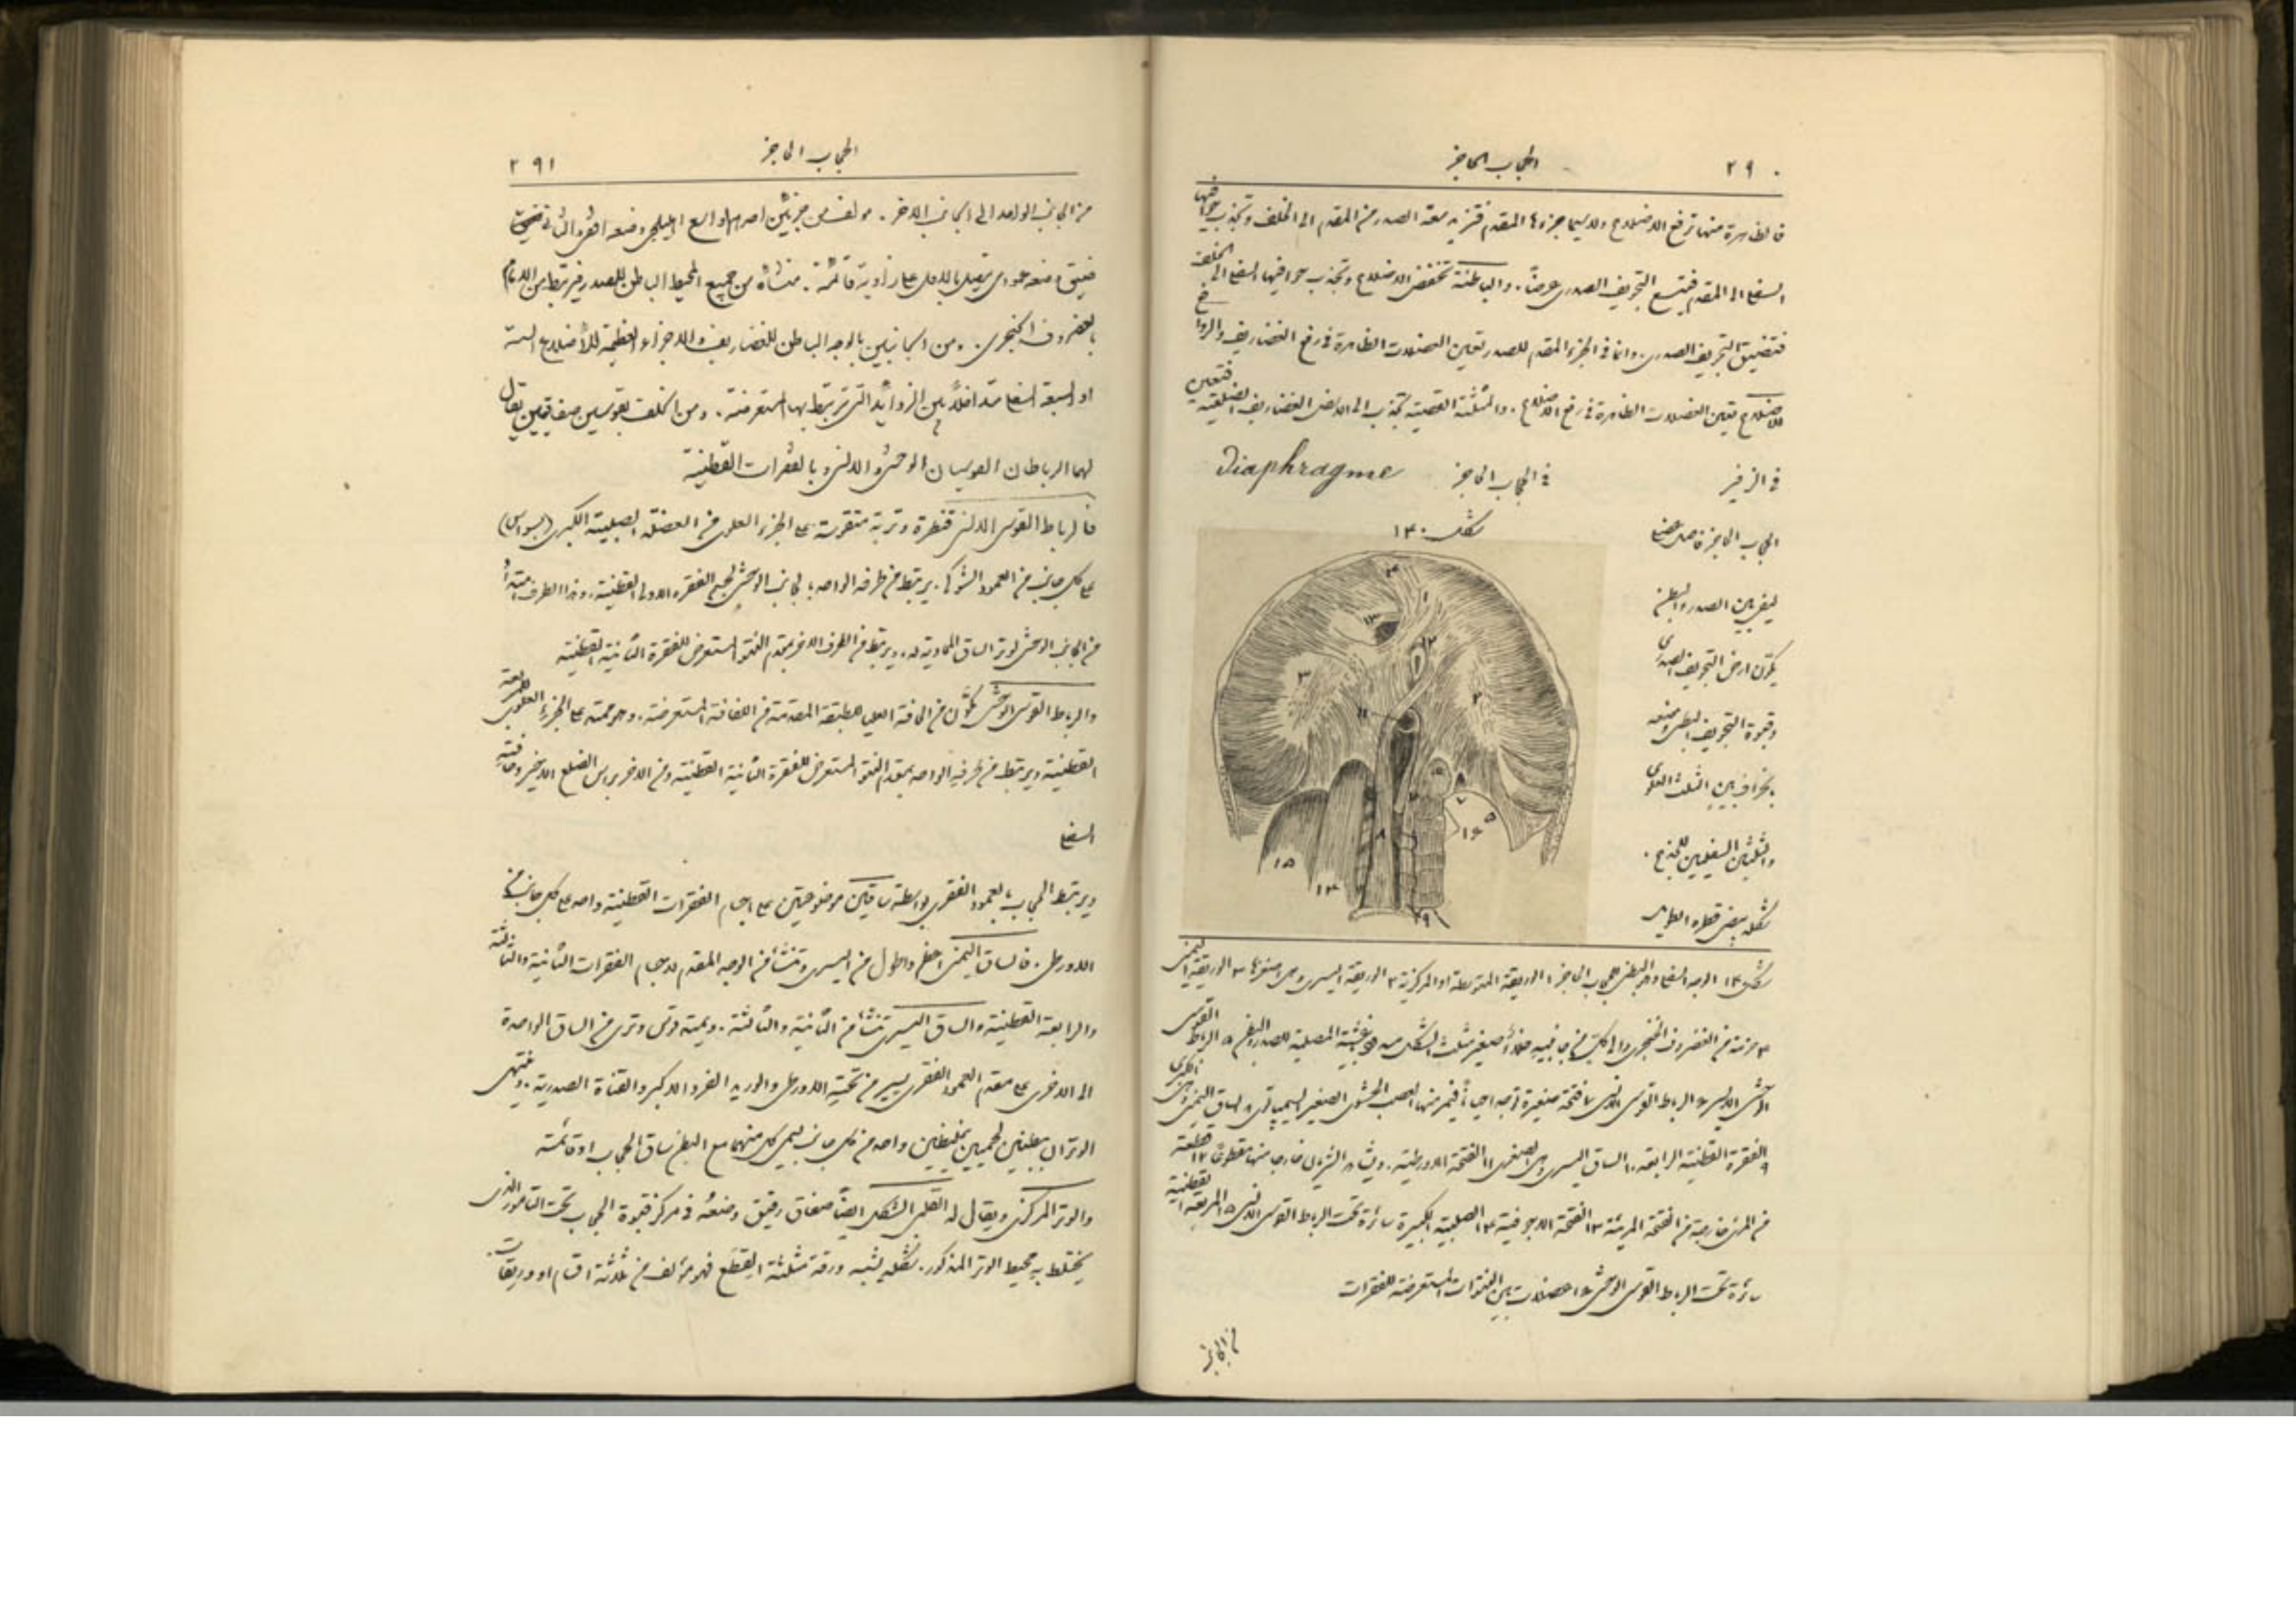 ٢٩٠
الحجاب الحاجز
فالظاهرة منها ترفع الاضلاع ولاسيما جزءها المقدم فتزيد سعة الصدر من المقدم الى الخلف وتجذب حوافيها
السفلى الى المقدم فيتسع التجويف الصدري عرضًا. والباطنة تخفض الاضلاع وتجذب حوافيها السفلى الى الخلف
فتضيق التجويف الصدري. واما في الجزء المقدم للصدر تعين العضلات الظاهرة في رفع الغضاريف والروافع
للاضلاع تعين العضلات الظاهرة في رفع الاضلاع. والمثلثة القصية تجذب الى الاسفل الغضاريف الضلعية فتعين
في الزفير
في الحجاب الحاجز
Diaphragme
شكل ١٣٠
الحجاب الحاجز فاصل عضلي
ليفي بين الصدر والبطن
يكوّن ارض التجويف الصدري
وقبوة التجويف البطني وضعه
بانحراف بين الثلث العلوي
والثلثين السفليين للجذع.
شكله بيضي قطره الطويل
شكل ١٣٠ الوجه السفلي او البطني للحجاب الحاجز ١ الوريقة المتوسطة او المركزية ٢ الوريقة اليسرى وهي اصغرها ٣ الوريقة اليمنى
٤ حزمة من الغضروف الخنجري والى كل من جانبيه خلاء صغير مثلث الشكل الاغشية المصلية للصدر والبطن ٥ الرباط القوسي
الوحشي الايسر ٦ الرباط القوسي الانسي ٧ فتحة صغيرة توجد احيانًا فيمر منها العصب الحشوي الصغير السيمباتوي ٨ الساق اليمنى
٩ الفقرة القطنية الرابعة ١٠ الساق اليسرى وهي الصغرى ١١ الفتحة الاورطية. ويشاهد الشريان خارجا منها مقطوعًا ١٢ قطعة
من المري خارجة من الفتحة المريئة ١٣ الفتحة الاجوفية ١٤ الصلبية الكبيرة سائرة تحت الرباط القوسي الانسي ١٥ المربعة القطنية
سائرة تحت الرباط القوسي الوحشي ١٦ عضلات بين النتوات المستعرضة للفقرات
من الجانب
٢٩١
الحجاب الحاجز
من الجانب الواحد الى الجانب الاخر. مولف من جزئين احدهما واسع اهليلجي وضعه افقي والثاني
ضيق وضعه عمودي يتصل بالاول على زاوية قائمة. منشأه من جميع المحيط الباطن للصدر فيرتبط من الامام
بالغضروف الخنجري. ومن الجانبين بالوجه الباطن للغضاريف والاجزاء العظمية للأضلاع الستة
او السبعة السفلى متداخلاً بين الزوائد التي ترتبط بها المستعرضة. ومن الخلف بقوسين صفاقيين يقال
لهما الرباطان القوسيان الوحشي والانسي وبالفقرات القطنية
فالرباط القوسي الانسي قنطرة وترية متقوسة على الجزء العلوي من العضلة الصلبية الكبرى (بسواس)
على كل جانب من العمود الشوكي. يرتبط من طرفه الواحد بالجانب الوحشي لجسم الفقرة الاولى القطنية. وهذا الطرف مبتدأ
من الجانب الوحشي لوتر الساق المحاوية له. ويرتبط من الطرف الاخر بمقدم النتوء المستعرض للفقرة الثانية القطنية
والرباط القوسي الوحشي يتكوّن من الحافة العليا للطبقة المقدمة من اللفافة المستعرضة. وهو ممتد على الجزء العلوي للمربعة
القطنية ويرتبط من طرفه الواحد بمقدم النتوء المستعرض للفقرة الثانية القطنية ومن الاخر براس الضلع الاخير وحافته
السفلى
ويرتبط الحجاب بالعمود الفقري بواسطة ساقين موضوعتين على اجسام الفقرات القطنية واحدة على كل جانب من
الاورطى. فالساق اليمنى اعظم واطول من اليسرى وتنشأ من الوجه المقدم لاجسام الفقرات الثانية والثالثة
والرابعة القطنية والساق اليسرى تنشأ من الثانية والثالثة. ويمتد قوس وتري من الساق الواحدة
الى الاخرى على مقدم العمود الفقري يسير من تحته الاورطى والوريد الفرد الاكبر والقناة الصدرية. وينتهي
الوتران ببطنين لحميين غليظين واحد من كل جانب يسمى كل منهما مع البطن ساق الحجاب او قائمته
والوتر المركزي ويقال له القلبي الشكل ايضًا صفاق رقيق وضعه في مركز قبوة الحجاب تحت التامور الذي
يختلط به محيط الوتر المذكور. شكله يشبه ورقة مثلثة القطع فهو مؤلف من ثلاثة اقسام او وريقات